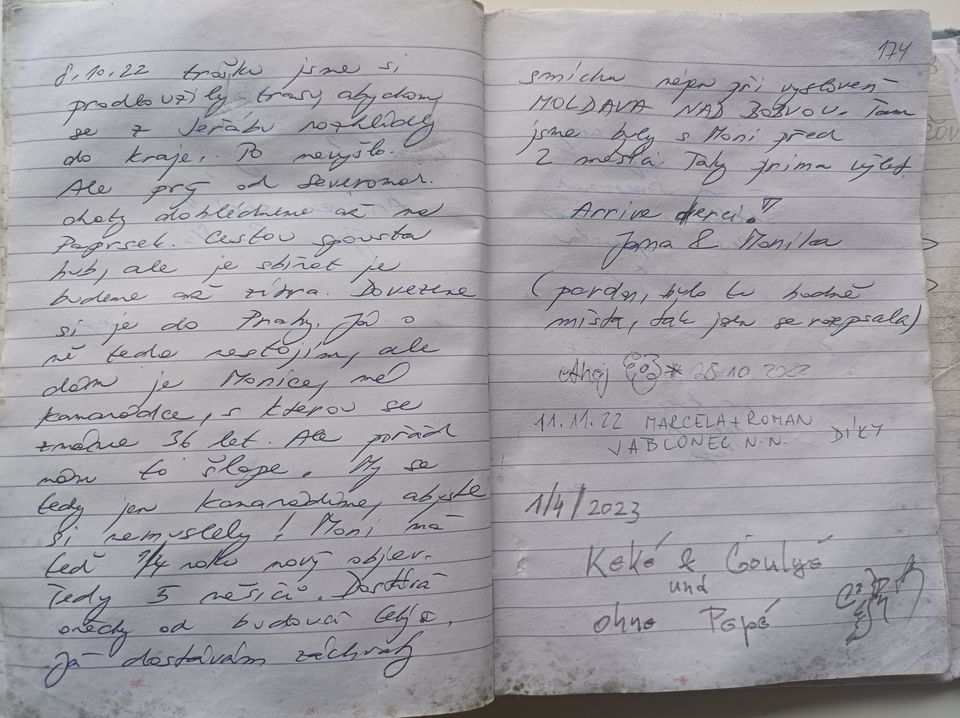 8.10.22 trošku jsme si
prodloužily trasy abychom
se z Jeřábu rozhlédly
do kraje. To nevyšlo.
Ale prý od severomor.
chaty dohlédneme až na
Paprsek. Cestou spousta
hub, ale je sbírat je
budeme až zítra. Dovezeme
si je do Prahy. Já o
ně teda nestojím, ale
dám je Monice, mé
kamarádce, s kterou se
známe 36 let. Ale pořád
nám to šlape. My se
tedy jen kamarádíme, abyste
si nemysleli! Moni má
teď 3/4 roku nový objev.
Tedy 5 měsíců. Dostává
ořechy od budoucí
Já dostávám záchvaty
174
smíchu nejen při vyslovení
MOLDAVA NAD BODVOU. Tam
jsme byly s Moni před
2 měsíci. Taky prima výlet.
Arrive derci!
Jana & Monika
(pardon, bylo tu hodně
místa, tak jsem se rozepsala)
Ahoj 28 10 2022
11.11.22 MARCELA + ROMAN
JABLONEC N.N. DÍKY
1/4/2023
Keké & Čoulyé
und
ohne Pepé